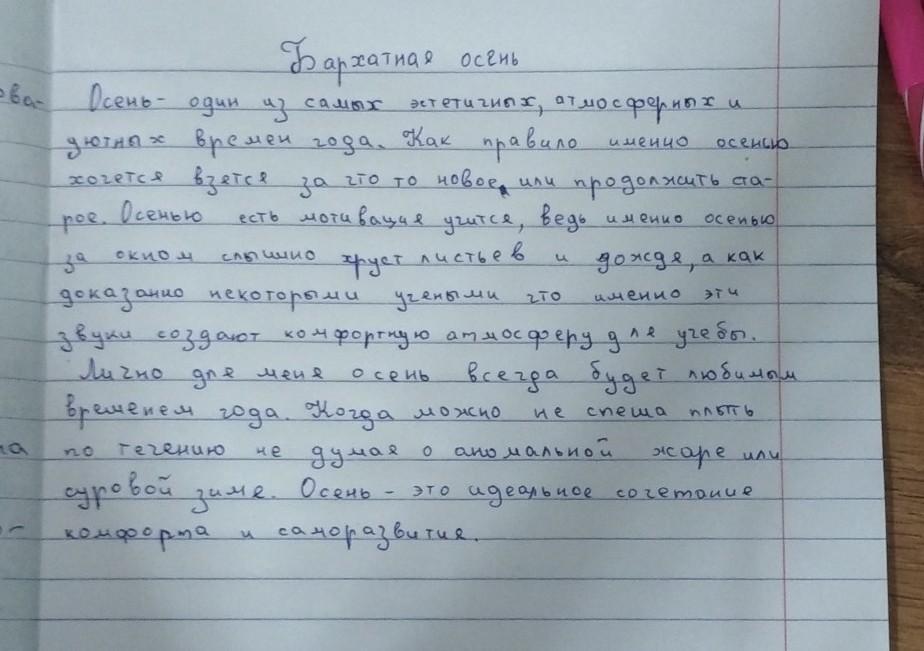 Бархатная осень
ова- Осень - один из самых эстетичных, атмосферных и
уютных времен года. Как правило именно осенью
хочется взется за что то новое, или продолжить ста-
рое. Осенью есть мотивация учится, ведь именно осенью
за окном слышно хруст листьев и дождя, а как
доказанно некоторыми учеными что именно эти
звуки создают комфортную атмосферу для учебы.
Лично для меня осень всегда будет любимым
временем года. Когда можно не спеша плыть
на по течению не думая о аномальной жаре или
суровой зиме. Осень - это идеальное сочетание
- комфорта и саморазвития.